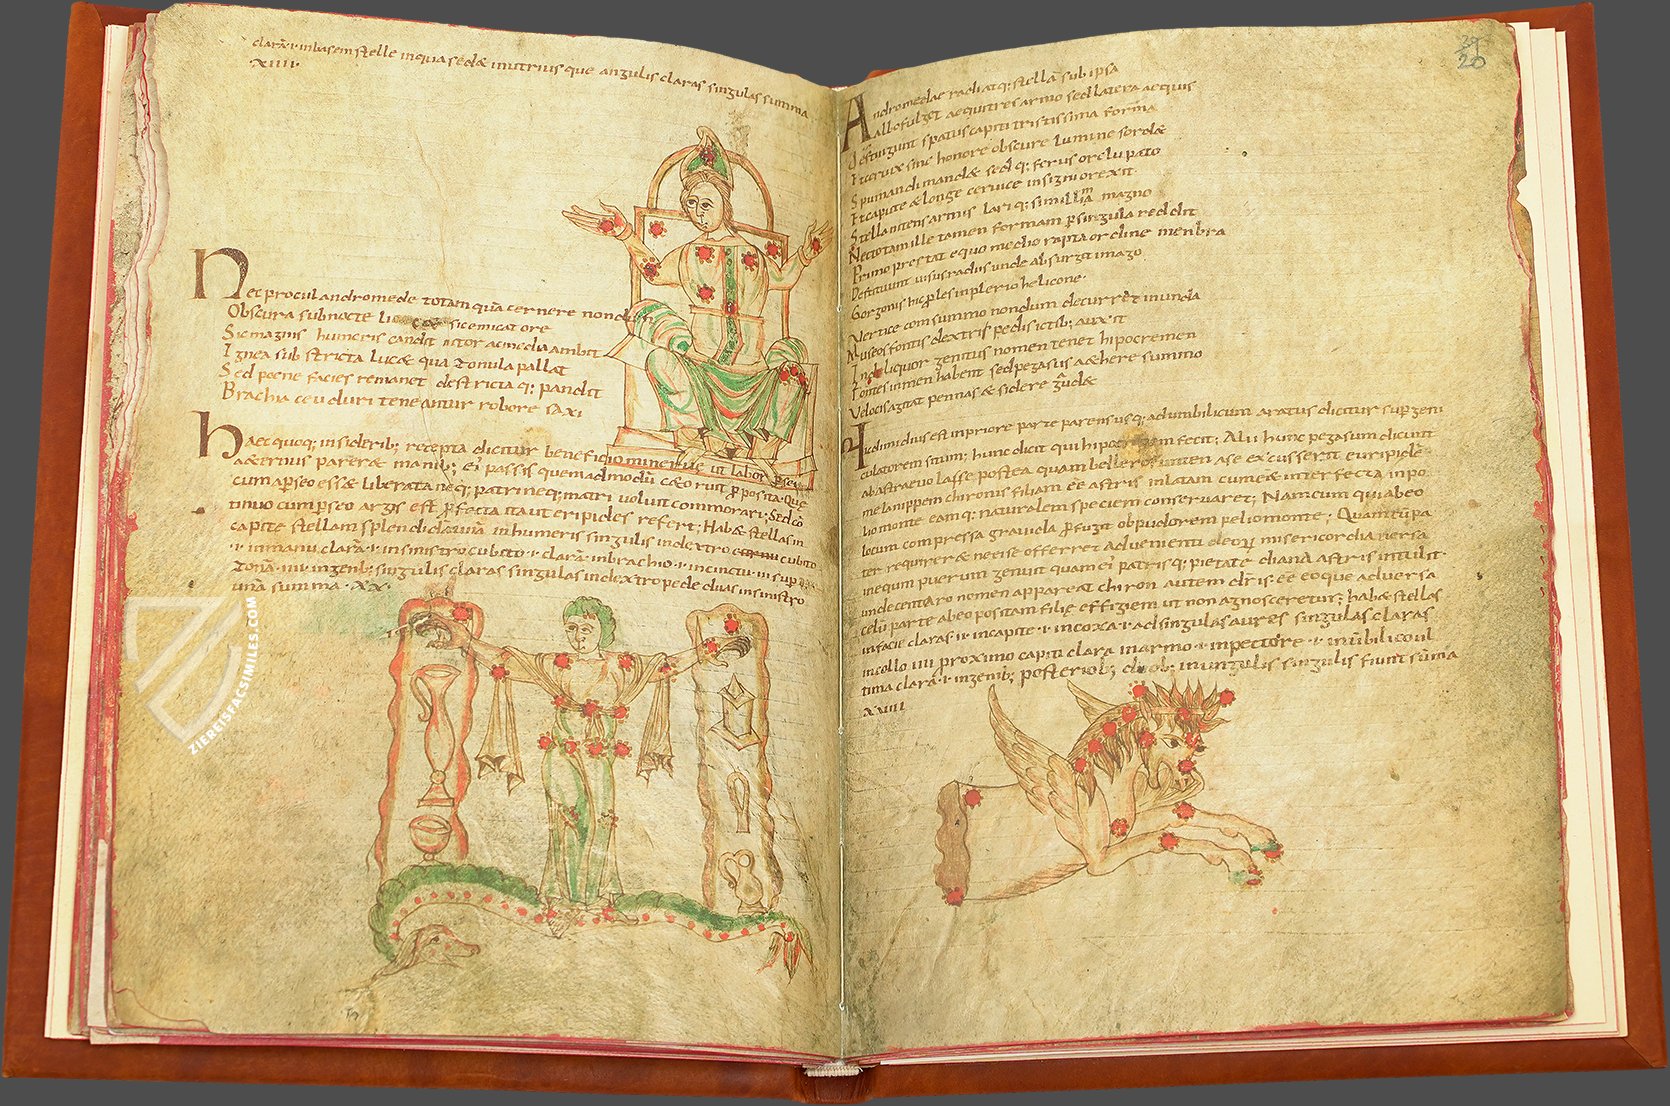 clarā·i· in basem stelle in equa sedæ in utrius que angulis claras singulas summa
XIIII·
Nec procul andromede totam quā cernere nondum
Obscura sub nocte sic emicat ore
Sic magnis humeris candit nitor ac media ambit
Ignea sub stricta lucæ qua zonula pallæ
Sed poene facies remanet destricta q; pandit
Brachia ceu duri teneantur robore saxi
Haec quoq; in siderib; recepta dicitur beneficio minerue ut labor psei
aæternus pareræ manib; ei passis quemadmodū cæo ruit pposita· Que
cum apseo essæ liberata neq; patri neq; matri voluit commorari; Sed cō
tinuo cum pseo argis est pfecta ita ut eripides refert; Habæ stellas in
capite stellam splendidā in humeris singulis in dextro cubito
·i· in manu clarā·i· in sinistro cubito·i· clarā· in brachio·i· in cinctu·iii· sup
zonā·iiii· in genib; singulis claras singulas in dextro pede duas in sinistro
unā summa·XX·
ZIEREISFACSIMILES.COM
39
20
Andromedae radiat q; stellā sub ipsa
aluo fulget aequi tres armo sed latera aequis
distingunt spatiis capiti tristissima forma
Et ceruix sine honore obscure lumine sordæ
Spumandi mandæ sed q; ferus ore lupato
Et capite & longe ceruice insignior exit
Stella nitens armis lari q; simillima magno
Nec totam ille tamen formam p singula reddit
Primo prestat equo medio rapta ordine membra
Destituunt visus radiis unde absurgit imago
Gorgonis hic ples in plerio helicone·
Vertice com summo nondum decurrēt in unda
Museos fontis dextris pedis ictib; aux·it
Inde liquor genitus nomen tenet hipocremen
Fontes in men habent sed pegasus aæhere summo
Velocis agitat pennas & sidere gaudæ
Hic dimidius est in priore parte parens usq; ad umbilicum aratus dicitur sup geni
culatorem situm; hunc dicit qui fecit; Alii hunc pegasum dicunt
ab astraeuo lasse postea quam ase excusserit euripide
me lanippem chironis filiam eē astris inlatam cum eæ inter fecta in po
lio monte eam q; naturalem speciem conservaret; Nam cum quia beo
locum compressa grauida pfugit ob pudorem pelio monte; Quam cū pa
ter requirer& ne eise offerret aduenienti deorū misericordia uersa
in equum puerum genuit quam ei patris q; pietate diana astris intulit
unde centauro nomen appareat chiron autem dr̄ is· eē eo que aduersa
celū parte abeo positam filie effigiem ut non agnosceretur; habæ stellas
in facie claras ·ii· in capite ·i· in coxa ·i· ad singulas aures singulas claras
in collo IIII proximo capiti clara in armo ·i· in pectore ·i· in ūbilico ul
tima clarā·i· in genib; posteriob; duob; in ungulis singulis fiunt sūma
XVIII